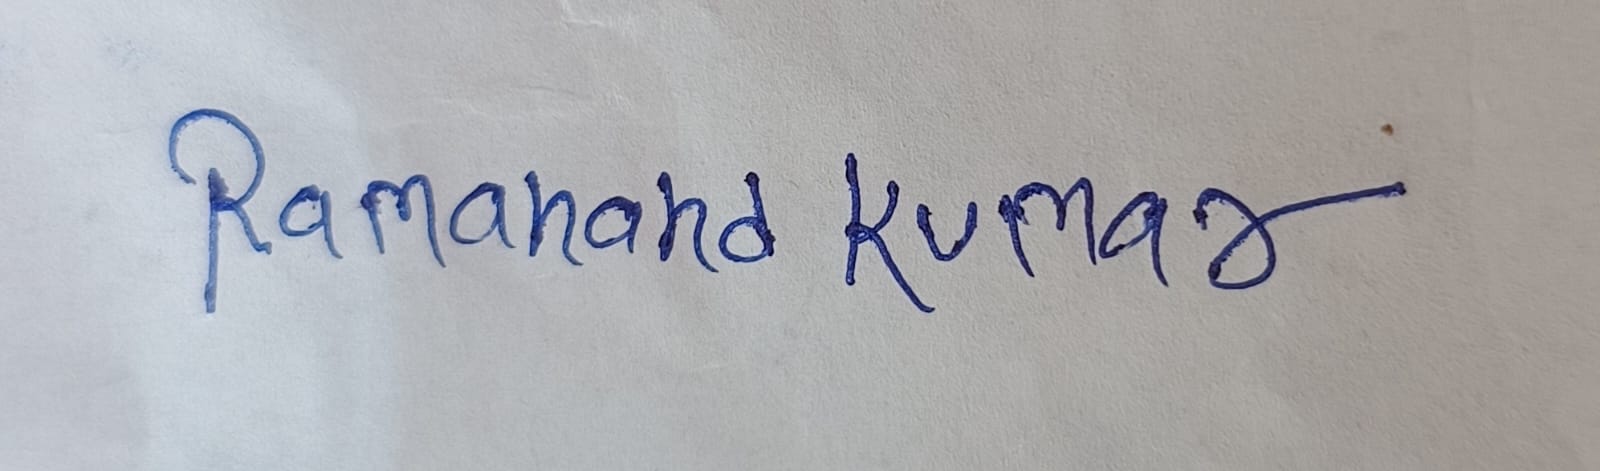 Ramanand Kumar